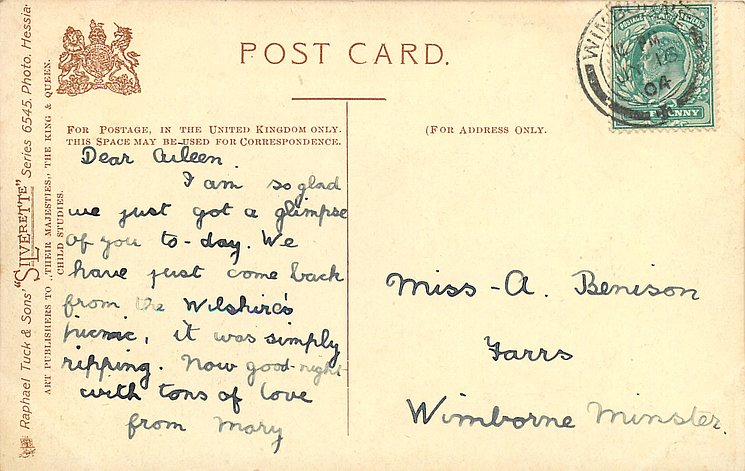 POST CARD.
FOR POSTAGE, IN THE UNITED KINGDOM ONLY.
THIS SPACE MAY BE USED FOR CORRESPONDENCE.
(FOR ADDRESS ONLY.
Dear Aileen.
I am so glad
we just got a glimpse
of you to-day. We
have just come back
from the Wilshire's
picnic, it was simply
ripping. Now good-night
with tons of love
from Mary
Miss - A. Benison
Farrs
Wimborne Minster.
Raphael Tuck & Sons' "SILVERETTE" Series 6545. Photo. Hessia
ART PUBLISHERS TO THEIR MAJESTIES, THE KING & QUEEN.
CHILD STUDIES.
WIMBORNE
PM
04